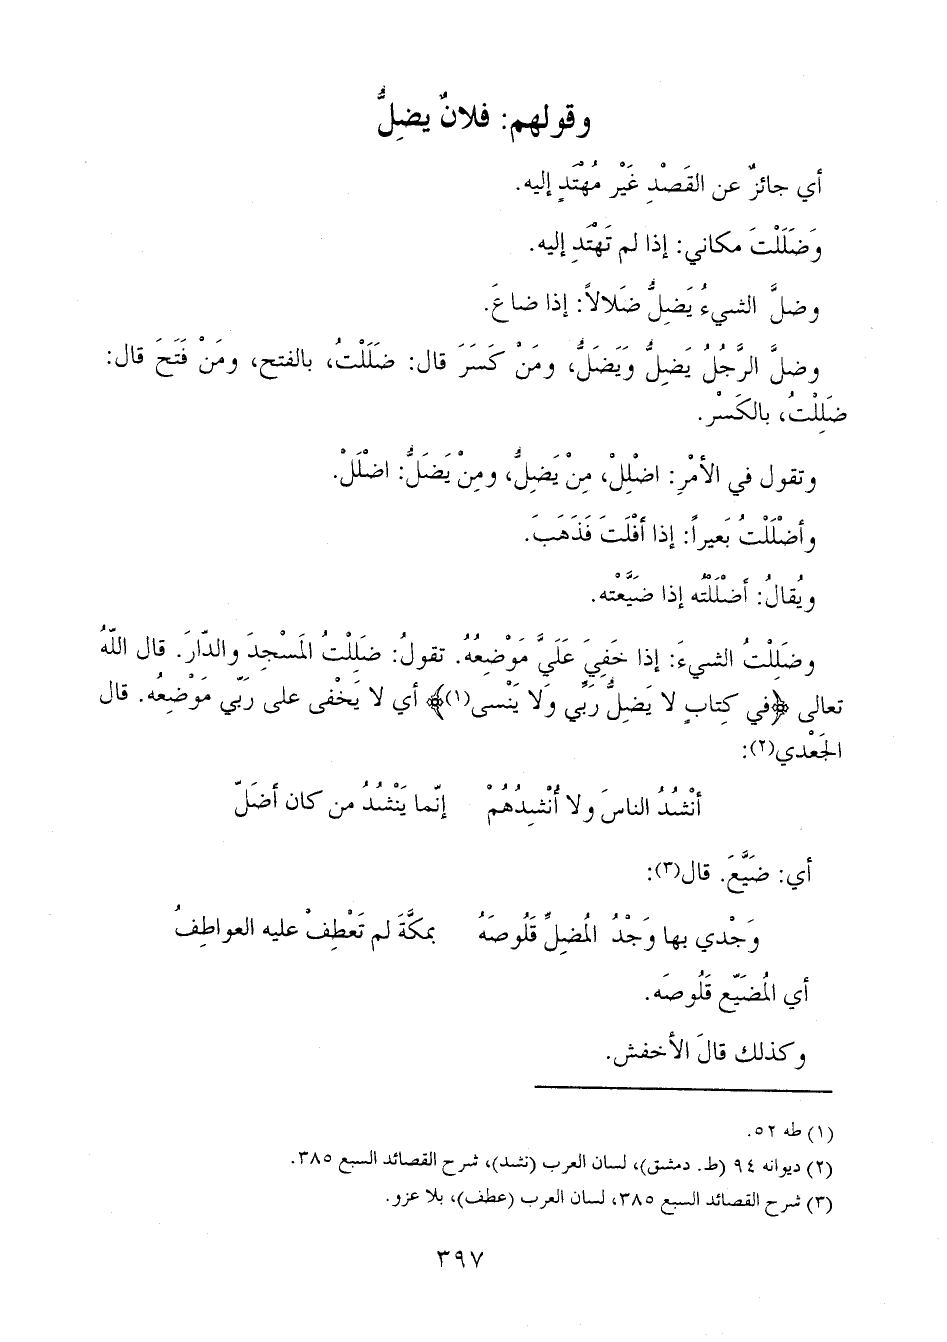 وقولهم: فلانٌ يضِلُّ
أي جائزٌ عن القَصْدِ غَيْر مُهْتَدٍ إليه.
وَضَلَلْتَ مكاني: إذا لم تَهْتَدِ إليه.
وضلَّ الشيءُ يَضِلُّ ضَلالاً: إذا ضاعَ.
وضلَّ الرَّجُلُ يَضِلُّ وَيَضَلُّ، ومَنْ كَسَرَ قال: ضَلَلْتُ، بالفتح، ومَنْ فَتَحَ قال:
ضَلِلْتُ، بالكَسْر.
وتقول في الأمْرِ: اضْلِلْ، مِنْ يَضِلُّ، ومِنْ يَضَلُّ: اضْلَلْ.
وأضْلَلْتُ بَعيراً: إذا أفْلَتَ فَذَهَبَ.
ويُقالُ: أضْلَلْتُه إذا ضَيَّعْته.
وضَلِلْتُ الشيءَ: إذا خَفِيَ عَلَيَّ مَوْضِعُهُ. تقولُ: ضَلِلْتُ المَسْجِدَ والدّارَ. قال اللّهُ
تعالى ﴿في كِتابٍ لا يَضِلُّ رَبِّي وَلا يَنْسى(١)﴾ أي لا يَخْفى على رَبّي مَوْضِعُه. قال
الجَعْدي(٢):
أنْشُدُ الناسَ ولا أُنْشِدُهُمْ إنّما يَنْشُدُ من كان أضَلّ
أي: ضَيَّعَ. قال(٣):
وَجْدي بها وَجْدُ المُضِلِّ قَلُوصَهُ بمكَّةَ لم تَعْطِفْ عليه العواطِفُ
أي المُضَيّع قَلُوصَه.
وكذلك قالَ الأخفش.
(١) طه ٥٢.
(٢) ديوانه ٩٤ (ط. دمشق)، لسان العرب (نشد)، شرح القصائد السبع ٣٨٥.
(٣) شرح القصائد السبع ٣٨٥، لسان العرب (عطف)، بلا عزو.
٣٩٧